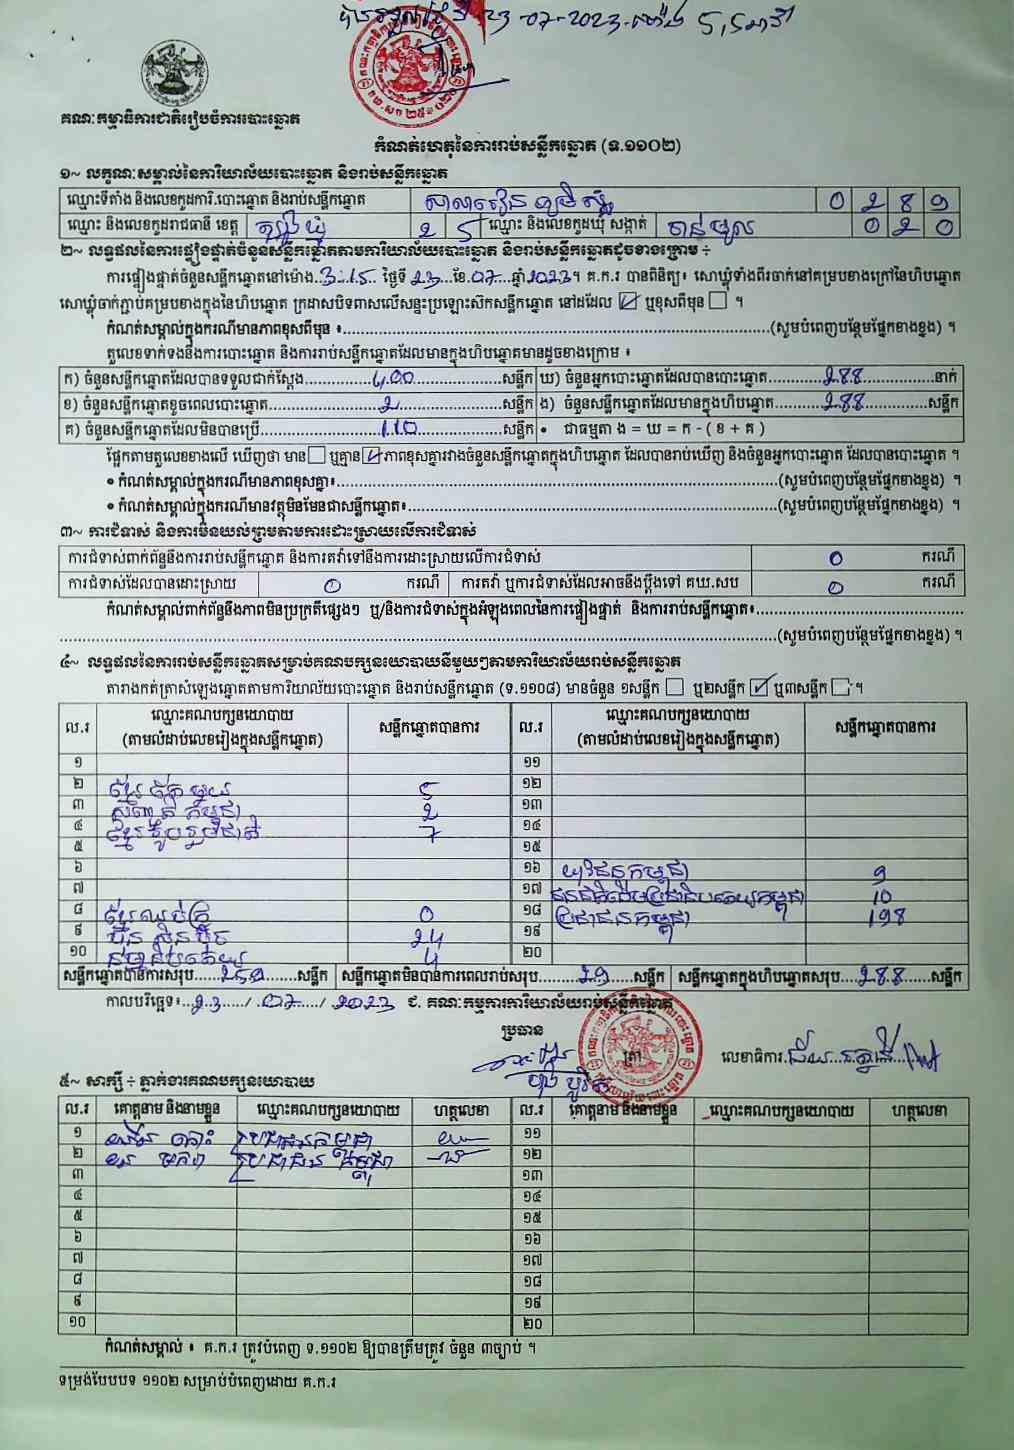 23-07-2023
គណៈកម្មាធិការជាតិរៀបចំការបោះឆ្នោត
កំណត់ហេតុនៃការរាប់សន្លឹកឆ្នោត (ទ.១១០២)
១~ លក្ខណៈសម្គាល់នៃការិយាល័យបោះឆ្នោត និងរាប់សន្លឹកឆ្នោត
ឈ្មោះទីតាំង និងលេខកូដការិ.បោះឆ្នោត និងរាប់សន្លឹកឆ្នោត 0 2 8 9
ឈ្មោះ និងលេខកូដរាជធានី ខេត្ត ត្បូងឃ្មុំ 2 5 ឈ្មោះ និងលេខកូដឃុំ សង្កាត់ ចាន់មូល 0 2 0
២~ លទ្ធផលនៃការផ្ទៀងផ្ទាត់ចំនួនសន្លឹកឆ្នោតតាមការិយាល័យបោះឆ្នោត និងរាប់សន្លឹកឆ្នោតដូចខាងក្រោម ÷
ការផ្ទៀងផ្ទាត់ចំនួនសន្លឹកឆ្នោតនៅម៉ោង..3:15.. ថ្ងៃទី 23...ខែ.07...ឆ្នាំ2023។ គ.ក.រ បានពិនិត្យ៖ សោឃ្លុំទាំងពីរចាក់នៅគម្របខាងក្រៅនៃហិបឆ្នោត
សោឃ្លុំចាក់ភ្ជាប់គម្របខាងក្នុងនៃហិបឆ្នោត ក្រដាសបិទពាសលើសន្ទះប្រឡោះស៊កសន្លឹកឆ្នោត នៅដដែល ☑ ឬខុសពីមុន ☐ ។
កំណត់សម្គាល់ក្នុងករណីមានភាពខុសពីមុន ៖...(សូមបំពេញបន្ថែមផ្នែកខាងខ្នង) ។
តួលេខទាក់ទងនឹងការបោះឆ្នោត និងការរាប់សន្លឹកឆ្នោតដែលមានក្នុងហិបឆ្នោតមានដូចខាងក្រោម ៖
ក) ចំនួនសន្លឹកឆ្នោតដែលបានទទួលជាក់ស្តែង...400...សន្លឹក ឃ) ចំនួនអ្នកបោះឆ្នោតដែលបានបោះឆ្នោត...288...នាក់
ខ) ចំនួនសន្លឹកឆ្នោតខូចពេលបោះឆ្នោត...2...សន្លឹក ង) ចំនួនសន្លឹកឆ្នោតដែលមានក្នុងហិបឆ្នោត...288...សន្លឹក
គ) ចំនួនសន្លឹកឆ្នោតដែលមិនបានប្រើ...110...សន្លឹក • ជាធម្មតា ង = ឃ = ក - ( ខ + គ )
ផ្អែកតាមតួលេខខាងលើ ឃើញថា មាន ☐ ឬគ្មាន ☑ ភាពខុសគ្នារវាងចំនួនសន្លឹកឆ្នោតក្នុងហិបឆ្នោត ដែលបានរាប់ឃើញ និងចំនួនអ្នកបោះឆ្នោត ដែលបានបោះឆ្នោត ។
• កំណត់សម្គាល់ក្នុងករណីមានភាពខុសគ្នា៖...(សូមបំពេញបន្ថែមផ្នែកខាងខ្នង) ។
• កំណត់សម្គាល់ក្នុងករណីមានវត្ថុមិនមែនជាសន្លឹកឆ្នោត៖...(សូមបំពេញបន្ថែមផ្នែកខាងខ្នង) ។
៣~ ការជំទាស់ និងការមិនយល់ព្រមតាមការដោះស្រាយលើការជំទាស់
ការជំទាស់ពាក់ព័ន្ធនឹងការរាប់សន្លឹកឆ្នោត និងការតវ៉ាទៅនឹងការដោះស្រាយលើការជំទាស់ 0 ករណី
ការជំទាស់ដែលបានដោះស្រាយ 0 ករណី ការតវ៉ា ឬការជំទាស់ដែលអាចនឹងប្តឹងទៅ គឃ.សប 0 ករណី
កំណត់សម្គាល់ពាក់ព័ន្ធនឹងភាពមិនប្រក្រតីផ្សេងៗ ឬ/និងការជំទាស់ក្នុងអំឡុងពេលនៃការផ្ទៀងផ្ទាត់ និងការរាប់សន្លឹកឆ្នោត៖...
...(សូមបំពេញបន្ថែមផ្នែកខាងខ្នង) ។
៤~ លទ្ធផលនៃការរាប់សន្លឹកឆ្នោតសម្រាប់គណបក្សនយោបាយនីមួយៗតាមការិយាល័យរាប់សន្លឹកឆ្នោត
តារាងកត់ត្រាសំឡេងឆ្នោតតាមការិយាល័យបោះឆ្នោត និងរាប់សន្លឹកឆ្នោត (ទ.១១០៨) មានចំនួន ១សន្លឹក ☐ ឬ២សន្លឹក ☑ ឬ៣សន្លឹក ☐ ។
ល.រ ឈ្មោះគណបក្សនយោបាយ (តាមលំដាប់លេខរៀងក្នុងសន្លឹកឆ្នោត) សន្លឹកឆ្នោតបានការ ល.រ ឈ្មោះគណបក្សនយោបាយ (តាមលំដាប់លេខរៀងក្នុងសន្លឹកឆ្នោត) សន្លឹកឆ្នោតបានការ
១ ១១
២ 5 ១២
៣ 2 ១៣
៤ 7 ១៤
៥ ១៥
៦ ១៦ យុវជនកម្ពុជា 9
៧ ១៧ ជនជាតិដើមប្រជាធិបតេយ្យកម្ពុជា 10
៨ 0 ១៨ ប្រជាជនកម្ពុជា 198
៩ 24 ១៩
១០ 4 ២០
សន្លឹកឆ្នោតបានការសរុប...259...សន្លឹក សន្លឹកឆ្នោតមិនបានការពេលរាប់សរុប...29...សន្លឹក សន្លឹកឆ្នោតក្នុងហិបឆ្នោតសរុប...288...សន្លឹក
កាលបរិច្ឆេទ៖..23.../.07.../2023 ជ. គណៈកម្មការការិយាល័យរាប់សន្លឹកឆ្នោត
ប្រធាន
ត្រា លេខាធិការ
៥~ សាក្សី ÷ ភ្នាក់ងារគណបក្សនយោបាយ
ល.រ គោត្តនាម និងនាមខ្លួន ឈ្មោះគណបក្សនយោបាយ ហត្ថលេខា ល.រ គោត្តនាម និងនាមខ្លួន ឈ្មោះគណបក្សនយោបាយ ហត្ថលេខា
១ ប្រជាជនកម្ពុជា ១១
២ ប្រជាជនកម្ពុជា ១២
៣ ១៣
៤ ១៤
៥ ១៥
៦ ១៦
៧ ១៧
៨ ១៨
៩ ១៩
១០ ២០
កំណត់សម្គាល់ ៖ គ.ក.រ ត្រូវបំពេញ ទ.១១០២ ឱ្យបានត្រឹមត្រូវ ចំនួន ៣ច្បាប់ ។
ទម្រង់បែបបទ ១១០២ សម្រាប់បំពេញដោយ គ.ក.រ